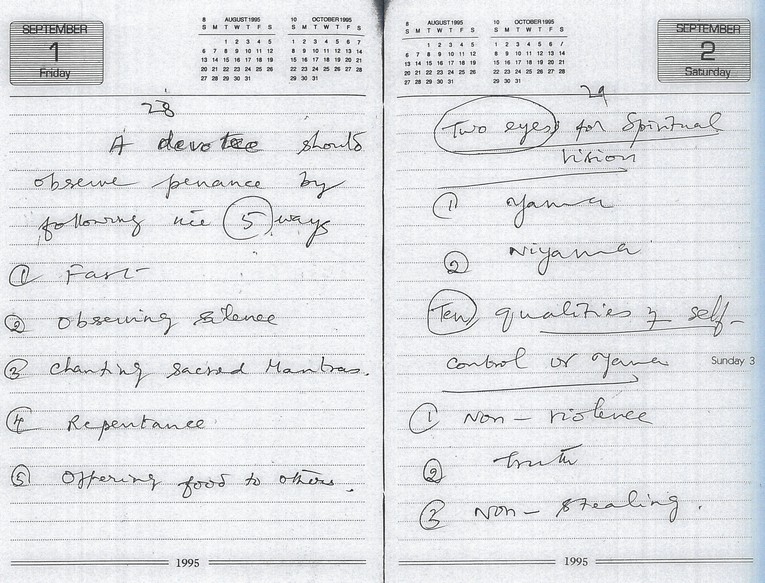 SEPTEMBER
1
Friday
8 AUGUST 1995
S M T W T F S
1 2 3 4 5
6 7 8 9 10 11 12
13 14 15 16 17 18 19
20 21 22 23 24 25 26
27 28 29 30 31
10 OCTOBER 1995
S M T W T F S
1 2 3 4 5 6 7
8 9 10 11 12 13 14
15 16 17 18 19 20 21
22 23 24 25 26 27 28
29 30 31
28
A devotee should
observe penance by
following nice 5 ways
① Fast
② Observing silence
③ Chanting sacred Mantras.
④ Repentance
⑤ Offering food to others.
1995
8 AUGUST 1995
S M T W T F S
1 2 3 4 5
6 7 8 9 10 11 12
13 14 15 16 17 18 19
20 21 22 23 24 25 26
27 28 29 30 31
10 OCTOBER 1995
S M T W T F S
1 2 3 4 5 6 7
8 9 10 11 12 13 14
15 16 17 18 19 20 21
22 23 24 25 26 27 28
29 30 31
SEPTEMBER
2
Saturday
29
Two eyes for Spiritual
Vision
① Yama
② Niyama
Ten qualities of self-
control or Yama
Sunday 3
① Non-violence
② Truth
③ Non-stealing.
1995